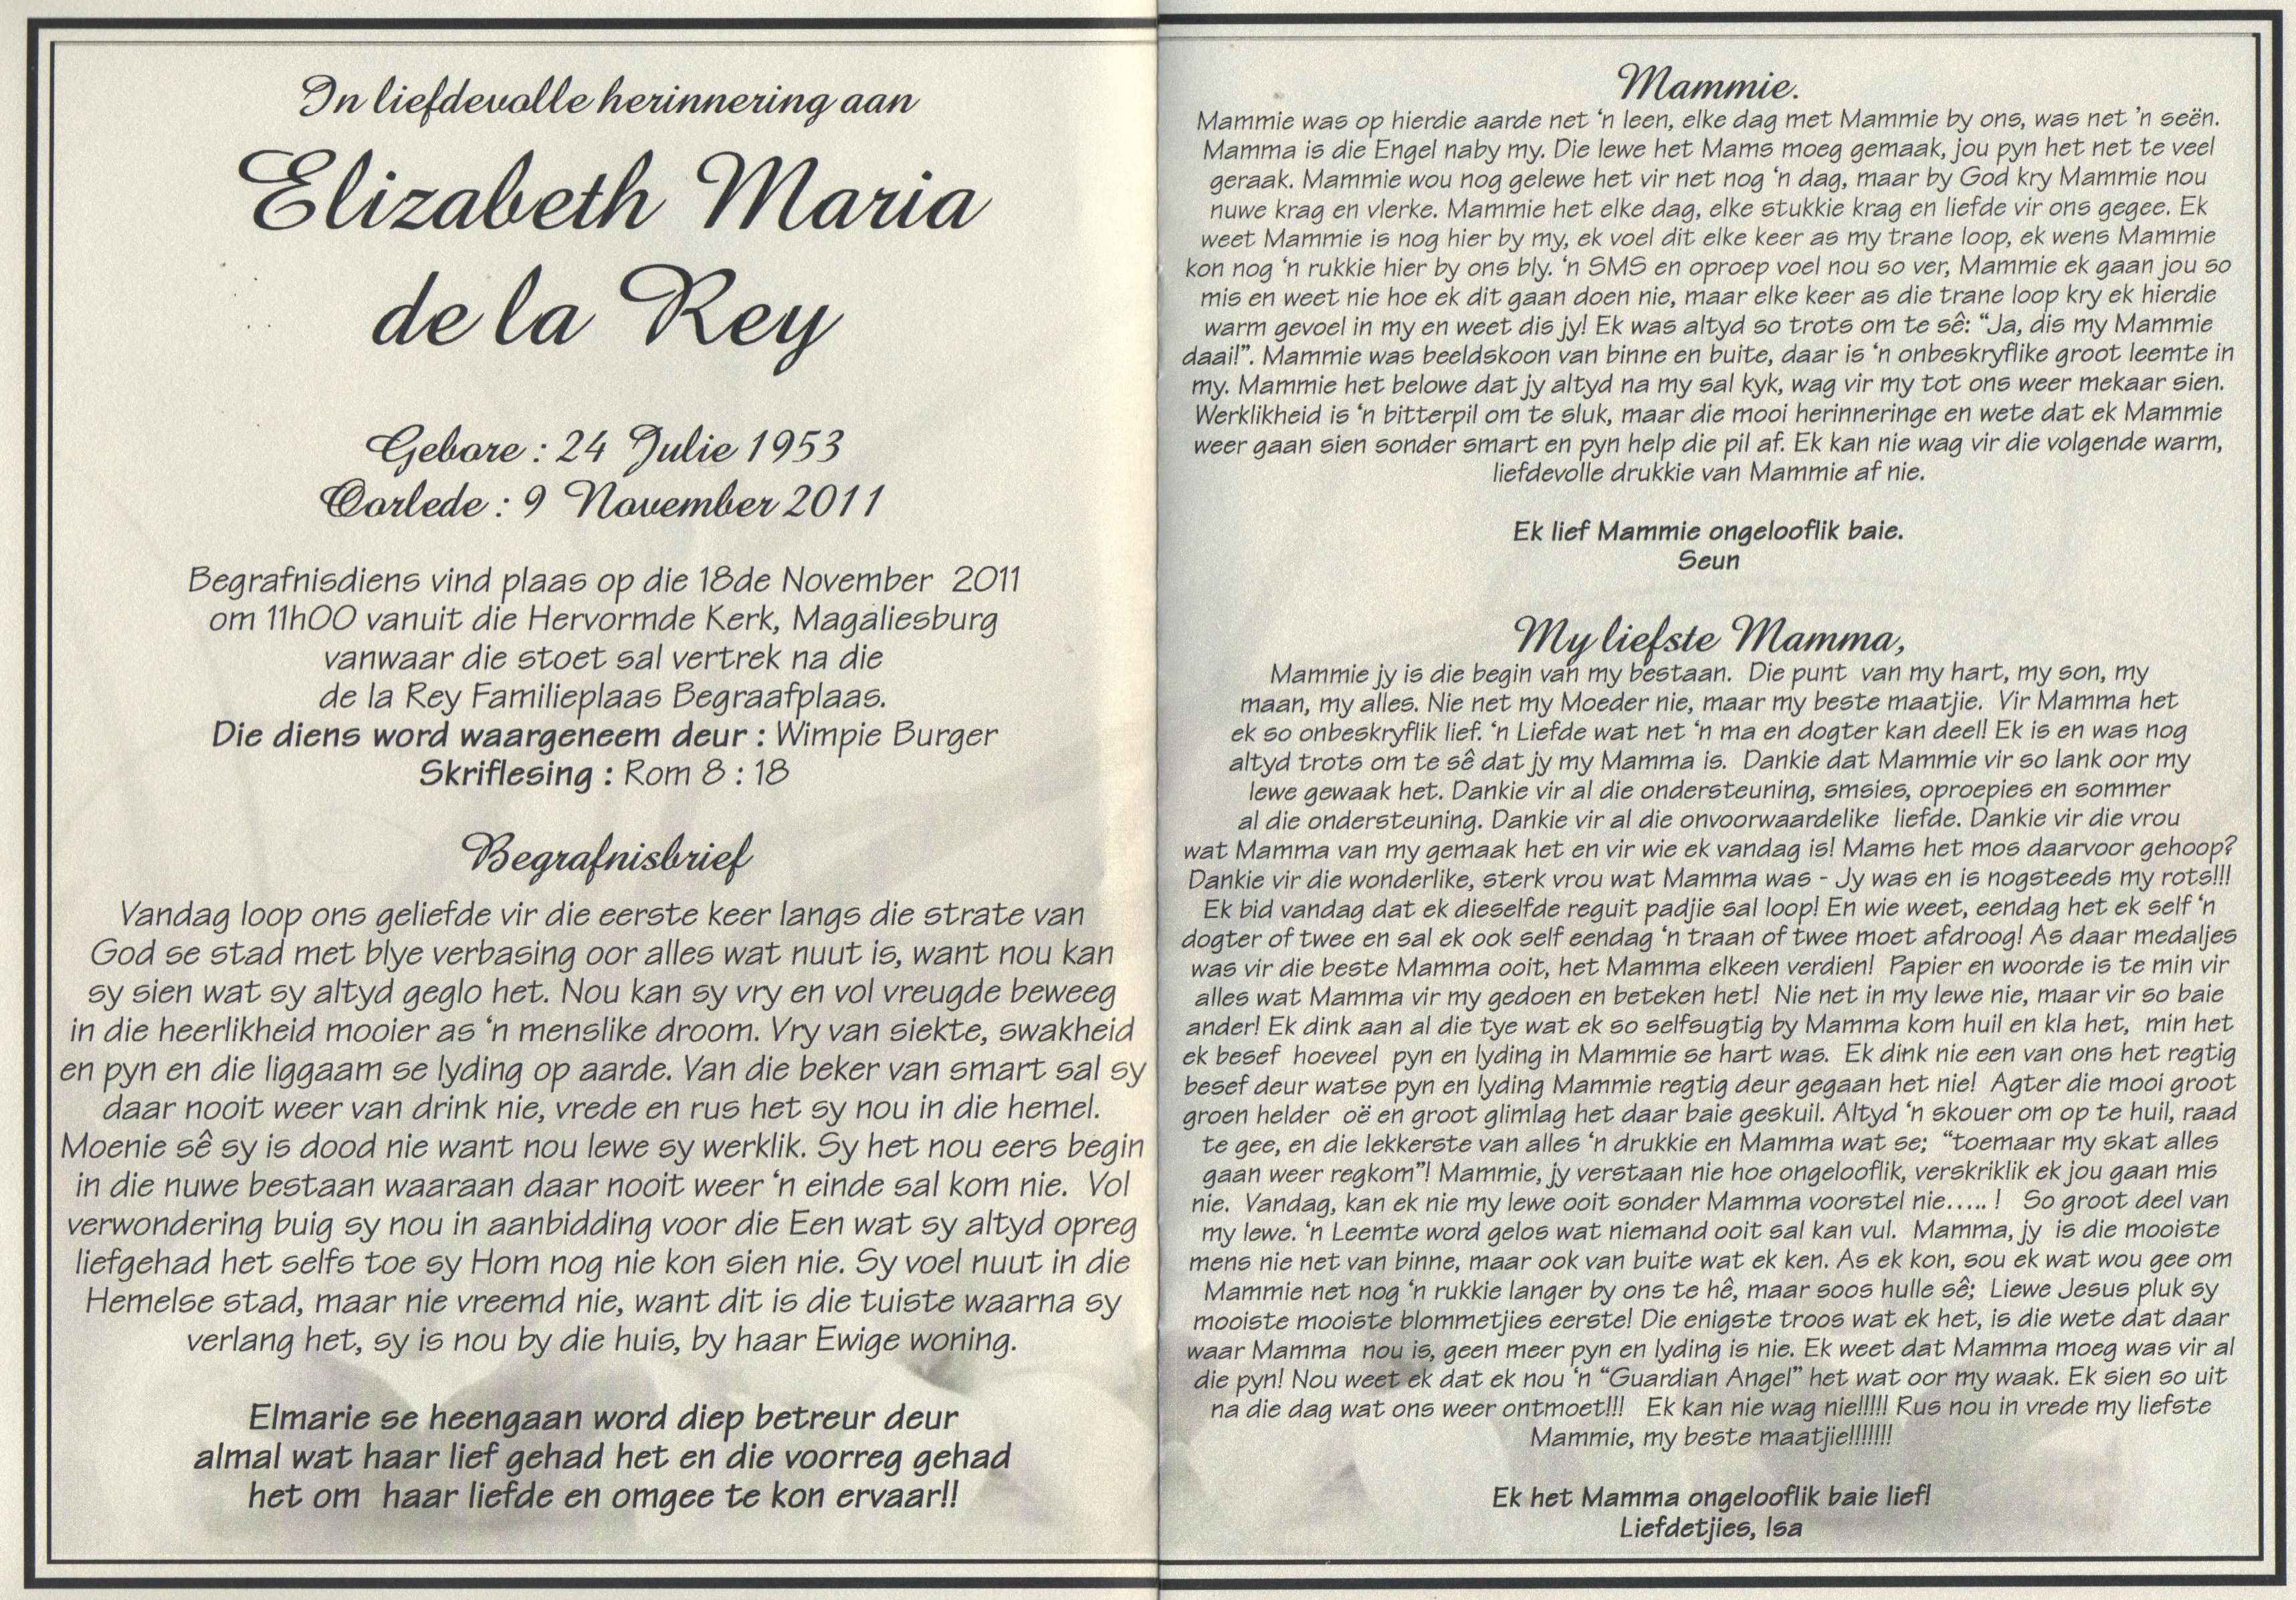 In liefdevolle herinnering aan
Elizabeth Maria
de la Rey
Gebore : 24 Julie 1953
Oorlede : 9 November 2011
Begrafnisdiens vind plaas op die 18de November 2011
om 11h00 vanuit die Hervormde Kerk, Magaliesburg
vanwaar die stoet sal vertrek na die
de la Rey Familieplaas Begraafplaas.
Die diens word waargeneem deur : Wimpie Burger
Skriflesing : Rom 8 : 18
Begrafnisbrief
Vandag loop ons geliefde vir die eerste keer langs die strate van
God se stad met blye verbasing oor alles wat nuut is, want nou kan
sy sien wat sy altyd geglo het. Nou kan sy vry en vol vreugde beweeg
in die heerlikheid mooier as ‘n menslike droom. Vry van siekte, swakheid
en pyn en die liggaam se lyding op aarde. Van die beker van smart sal sy
daar nooit weer van drink nie, vrede en rus het sy nou in die hemel.
Moenie sê sy is dood nie want nou lewe sy werklik. Sy het nou eers begin
in die nuwe bestaan waaraan daar nooit weer ‘n einde sal kom nie. Vol
verwondering buig sy nou in aanbidding voor die Een wat sy altyd opreg
liefgehad het selfs toe sy Hom nog nie kon sien nie. Sy voel nuut in die
Hemelse stad, maar nie vreemd nie, want dit is die tuiste waarna sy
verlang het, sy is nou by die huis, by haar Ewige woning.
Elmarie se heengaan word diep betreur deur
almal wat haar lief gehad het en die voorreg gehad
het om haar liefde en omgee te kon ervaar!!
Mammie.
Mammie was op hierdie aarde net ‘n leen, elke dag met Mammie by ons, was net ’n seën.
Mamma is die Engel naby my. Die lewe het Mams moeg gemaak, jou pyn het net te veel
geraak. Mammie wou nog gelewe het vir net nog ‘n dag, maar by God kry Mammie nou
nuwe krag en vlerke. Mammie het elke dag, elke stukkie krag en liefde vir ons gegee. Ek
weet Mammie is nog hier by my, ek voel dit elke keer as my trane loop, ek wens Mammie
kon nog ‘n rukkie hier by ons bly. ‘n SMS en oproep voel nou so ver, Mammie ek gaan jou so
mis en weet nie hoe ek dit gaan doen nie, maar elke keer as die trane loop kry ek hierdie
warm gevoel in my en weet dis jy! Ek was altyd so trots om te sê: “Ja, dis my Mammie
daai!”. Mammie was beeldskoon van binne en buite, daar is ‘n onbeskryflike groot leemte in
my. Mammie het belowe dat jy altyd na my sal kyk, wag vir my tot ons weer mekaar sien.
Werklikheid is ‘n bitterpil om te sluk, maar die mooi herinneringe en wete dat ek Mammie
weer gaan sien sonder smart en pyn help die pil af. Ek kan nie wag vir die volgende warm,
liefdevolle drukkie van Mammie af nie.
Ek lief Mammie ongelooflik baie.
Seun
My liefste Mamma,
Mammie jy is die begin van my bestaan. Die punt van my hart, my son, my
maan, my alles. Nie net my Moeder nie, maar my beste maatjie. Vir Mamma het
ek so onbeskryflik lief. ‘n Liefde wat net ‘n ma en dogter kan deel! Ek is en was nog
altyd trots om te sê dat jy my Mamma is. Dankie dat Mammie vir so lank oor my
lewe gewaak het. Dankie vir al die ondersteuning, smsies, oproepies en sommer
al die ondersteuning. Dankie vir al die onvoorwaardelike liefde. Dankie vir die vrou
wat Mamma van my gemaak het en vir wie ek vandag is! Mams het mos daarvoor gehoop?
Dankie vir die wonderlike, sterk vrou wat Mamma was - Jy was en is nogsteeds my rots!!!
Ek bid vandag dat ek dieselfde reguit padjie sal loop! En wie weet, eendag het ek self ‘n
dogter of twee en sal ek ook self eendag ‘n traan of twee moet afdroog! As daar medaljes
was vir die beste Mamma ooit, het Mamma elkeen verdien! Papier en woorde is te min vir
alles wat Mamma vir my gedoen en beteken het! Nie net in my lewe nie, maar vir so baie
ander! Ek dink aan al die tye wat ek so selfsugtig by Mamma kom huil en kla het, min het
ek besef hoeveel pyn en lyding in Mammie se hart was. Ek dink nie een van ons het regtig
besef deur watse pyn en lyding Mammie regtig deur gegaan het nie! Agter die mooi groot
groen helder oë en groot glimlag het daar baie geskuil. Altyd ‘n skouer om op te huil, raad
te gee, en die lekkerste van alles ‘n drukkie en Mamma wat se; “toemaar my skat alles
gaan weer regkom”! Mammie, jy verstaan nie hoe ongelooflik, verskriklik ek jou gaan mis
nie. Vandag, kan ek nie my lewe ooit sonder Mamma voorstel nie….. ! So groot deel van
my lewe. ‘n Leemte word gelos wat niemand ooit sal kan vul. Mamma, jy is die mooiste
mens nie net van binne, maar ook van buite wat ek ken. As ek kon, sou ek wat wou gee om
Mammie net nog ‘n rukkie langer by ons te hê, maar soos hulle sê; Liewe Jesus pluk sy
mooiste mooiste blommetjies eerste! Die enigste troos wat ek het, is die wete dat daar
waar Mamma nou is, geen meer pyn en lyding is nie. Ek weet dat Mamma moeg was vir al
die pyn! Nou weet ek dat ek nou ‘n “Guardian Angel” het wat oor my waak. Ek sien so uit
na die dag wat ons weer ontmoet!!! Ek kan nie wag nie!!!!! Rus nou in vrede my liefste
Mammie, my beste maatjie!!!!!!!
Ek het Mamma ongelooflik baie lief!
Liefdetjies, Isa